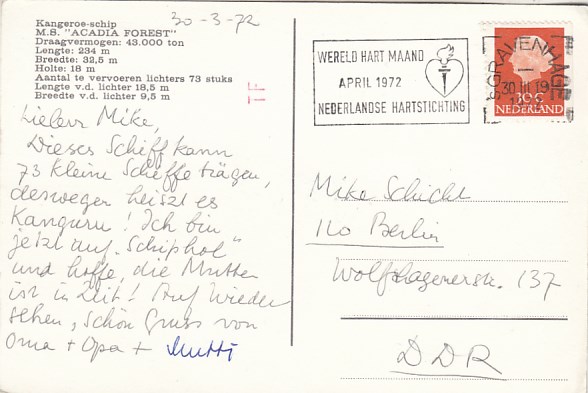 Kangeroe-schip
M.S. "ACADIA FOREST"
Draagvermogen: 43.000 ton
Lengte: 234 m
Breedte: 32,5 m
Holte: 18 m
Aantal te vervoeren lichters 73 stuks
Lengte v.d. lichter 18,5 m
Breedte v.d. lichter 9,5 m
30-3-72
TF
WERELD HART MAAND
APRIL 1972
NEDERLANDSE HARTSTICHTING
'S GRAVENHAGE
30 III 19
30 C
NEDERLAND
Lieber Mike,
Dieses Schiff kann
73 kleine Schiffe trägen,
deswegen heiszt es
Kanguru! Ich bin
jetzt auf „Schiphol"
und hoffe, die Mutter
ist in Zeit! Auf Wieder
sehen, schön Gruss von
Oma + Opa + Mutti
Mike Schicht
110 Berlin
Wolfshagenerstr. 137
DDR